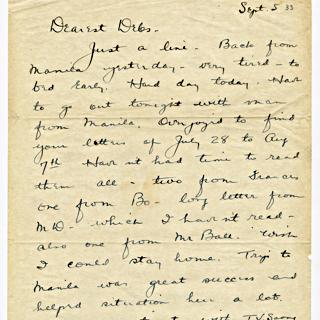 Sept. 5 33
Dearest Debs.
Just a line - Back from
Manila yesterday - very tired - to
bed early. Hard day today. Have
to go out tonight with man
from Manila. Overjoyed to find
your letters of July 28 to Aug
7th Havn't had time to read
them all - two from Frances
one from Bo - long letter from
M.D. - which I havn't read -
also one from Mr Ball. Wish
I could stay home. Trip to
Manila was great success and
helped situation here a lot.
with T.V. Soong